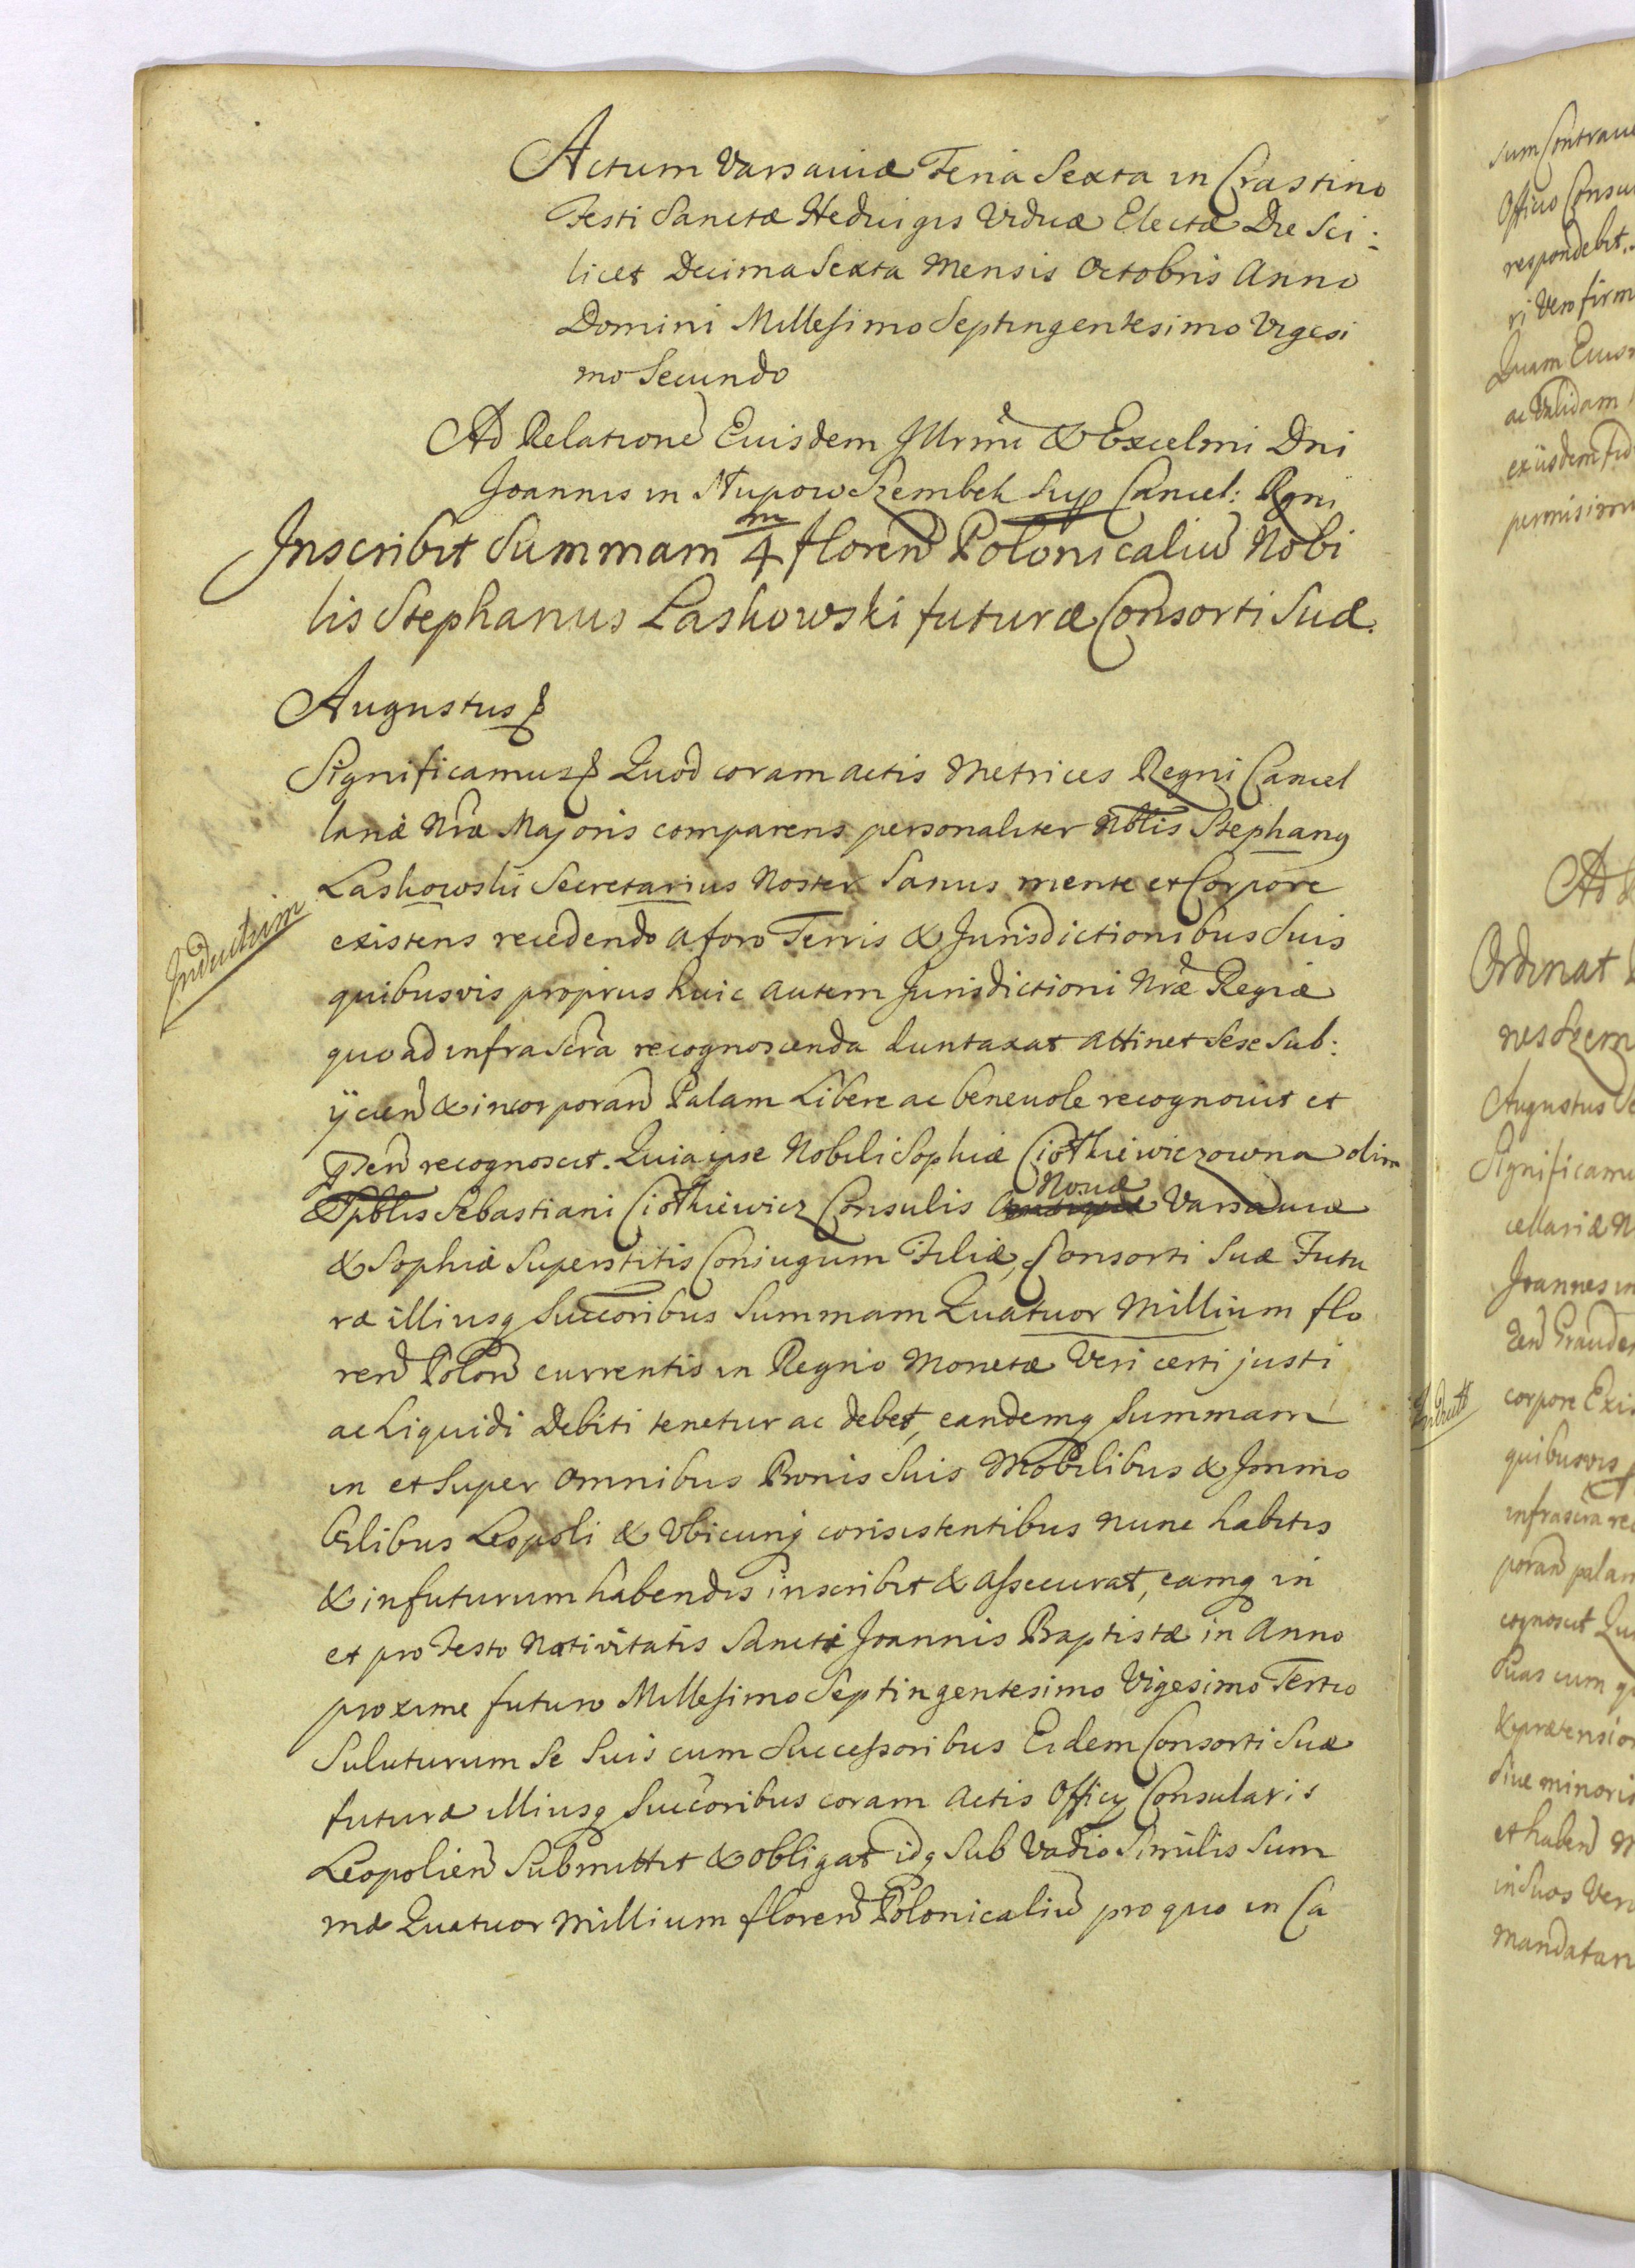 Actum Varsaviæ Feria Sexta in Crastino
Festi Sanctæ Hedvigis Viduæ Electæ Die Sci:
licet Decima Sexta Mensis Octobris Anno
Domini Millesimo Septingentesimo Vigesi
mo Secundo
Ad Relatione Euisdem Illrmi & Excelmi Dni
Joannis in Słupow Szembek Sup Cancel: Rgni
Inscribit Summam 4 m floren Polonicaliu Nobi
lis Stephanus Laskowski futuræ Consorti Suæ.
Augustus
Significamus Quod coram actis Metrices Regni Cancel
lariæ Nræ Majoris comparens personaliter Nblis Stephang
Laskowski Secretarius Noster Sanus mente et Corpore
existens recedendo a foro Terris & Jurisdictionibus Suis
quibusvis proprius huic autem Jurisdictioni Nræ Regiæ
quo ad infrascra recognoscenda duntaxat attinet Sese Sub:
ÿcien & incorporan Palam Libere ac benevole recognovit et
pten recognoscit. Quia ipse Nobili Sophiæ Ciotkiewiczowna olim
Spblis Sebastiani Ciotkiewicz Consulis Novæ Varsaviæ
& Sophiæ Superstitis Coniugum Filiæ, Consorti Suæ Futu
ræ illiusq Succoribus Summam Quatuor Millium flo
ren Polon currentis in Regno Monetæ Veri certi justi
ac Liquidi Debiti tenetur ac debet, eandemq Summam
in et Super omnibus Bonis Suis Mobilibus & Immo
bilibus Leopoli & Vbicunq consistentibus nunc habitis
& in futurum habendis inscribit & assecurat, eamq in
et pro Festo Nativitatis Sancti Joannis Baptistæ in Anno
proxime futuro Millesimo Septingentesimo Vigesimo Tertio
Suluturum Se Suis cum Successoribus Eidem Consorti Suæ
futuræ illiusq Succoribus coram Actis Officy Consularis
Leopolien Submittit & obligat idq Sub Vadio Similis Sum
mæ Quatuor Millium floren Polonicaliu pro quo in Ca
Inductum
sum Contrave
Officio Consu
respondebit.
ri Vero firm
Quam Euis
ac Validam
exiisdem
permisim
Ad
Ordinat
nes Szem
Augustus
Significamu
cellariæ N
Joannes in
corpore Exis
quibusvis
infrascra re
poran palam
cognoscit Qui
Suas cum
& prætension
sive minoris
et haben
in Suos Vero
Mandatari